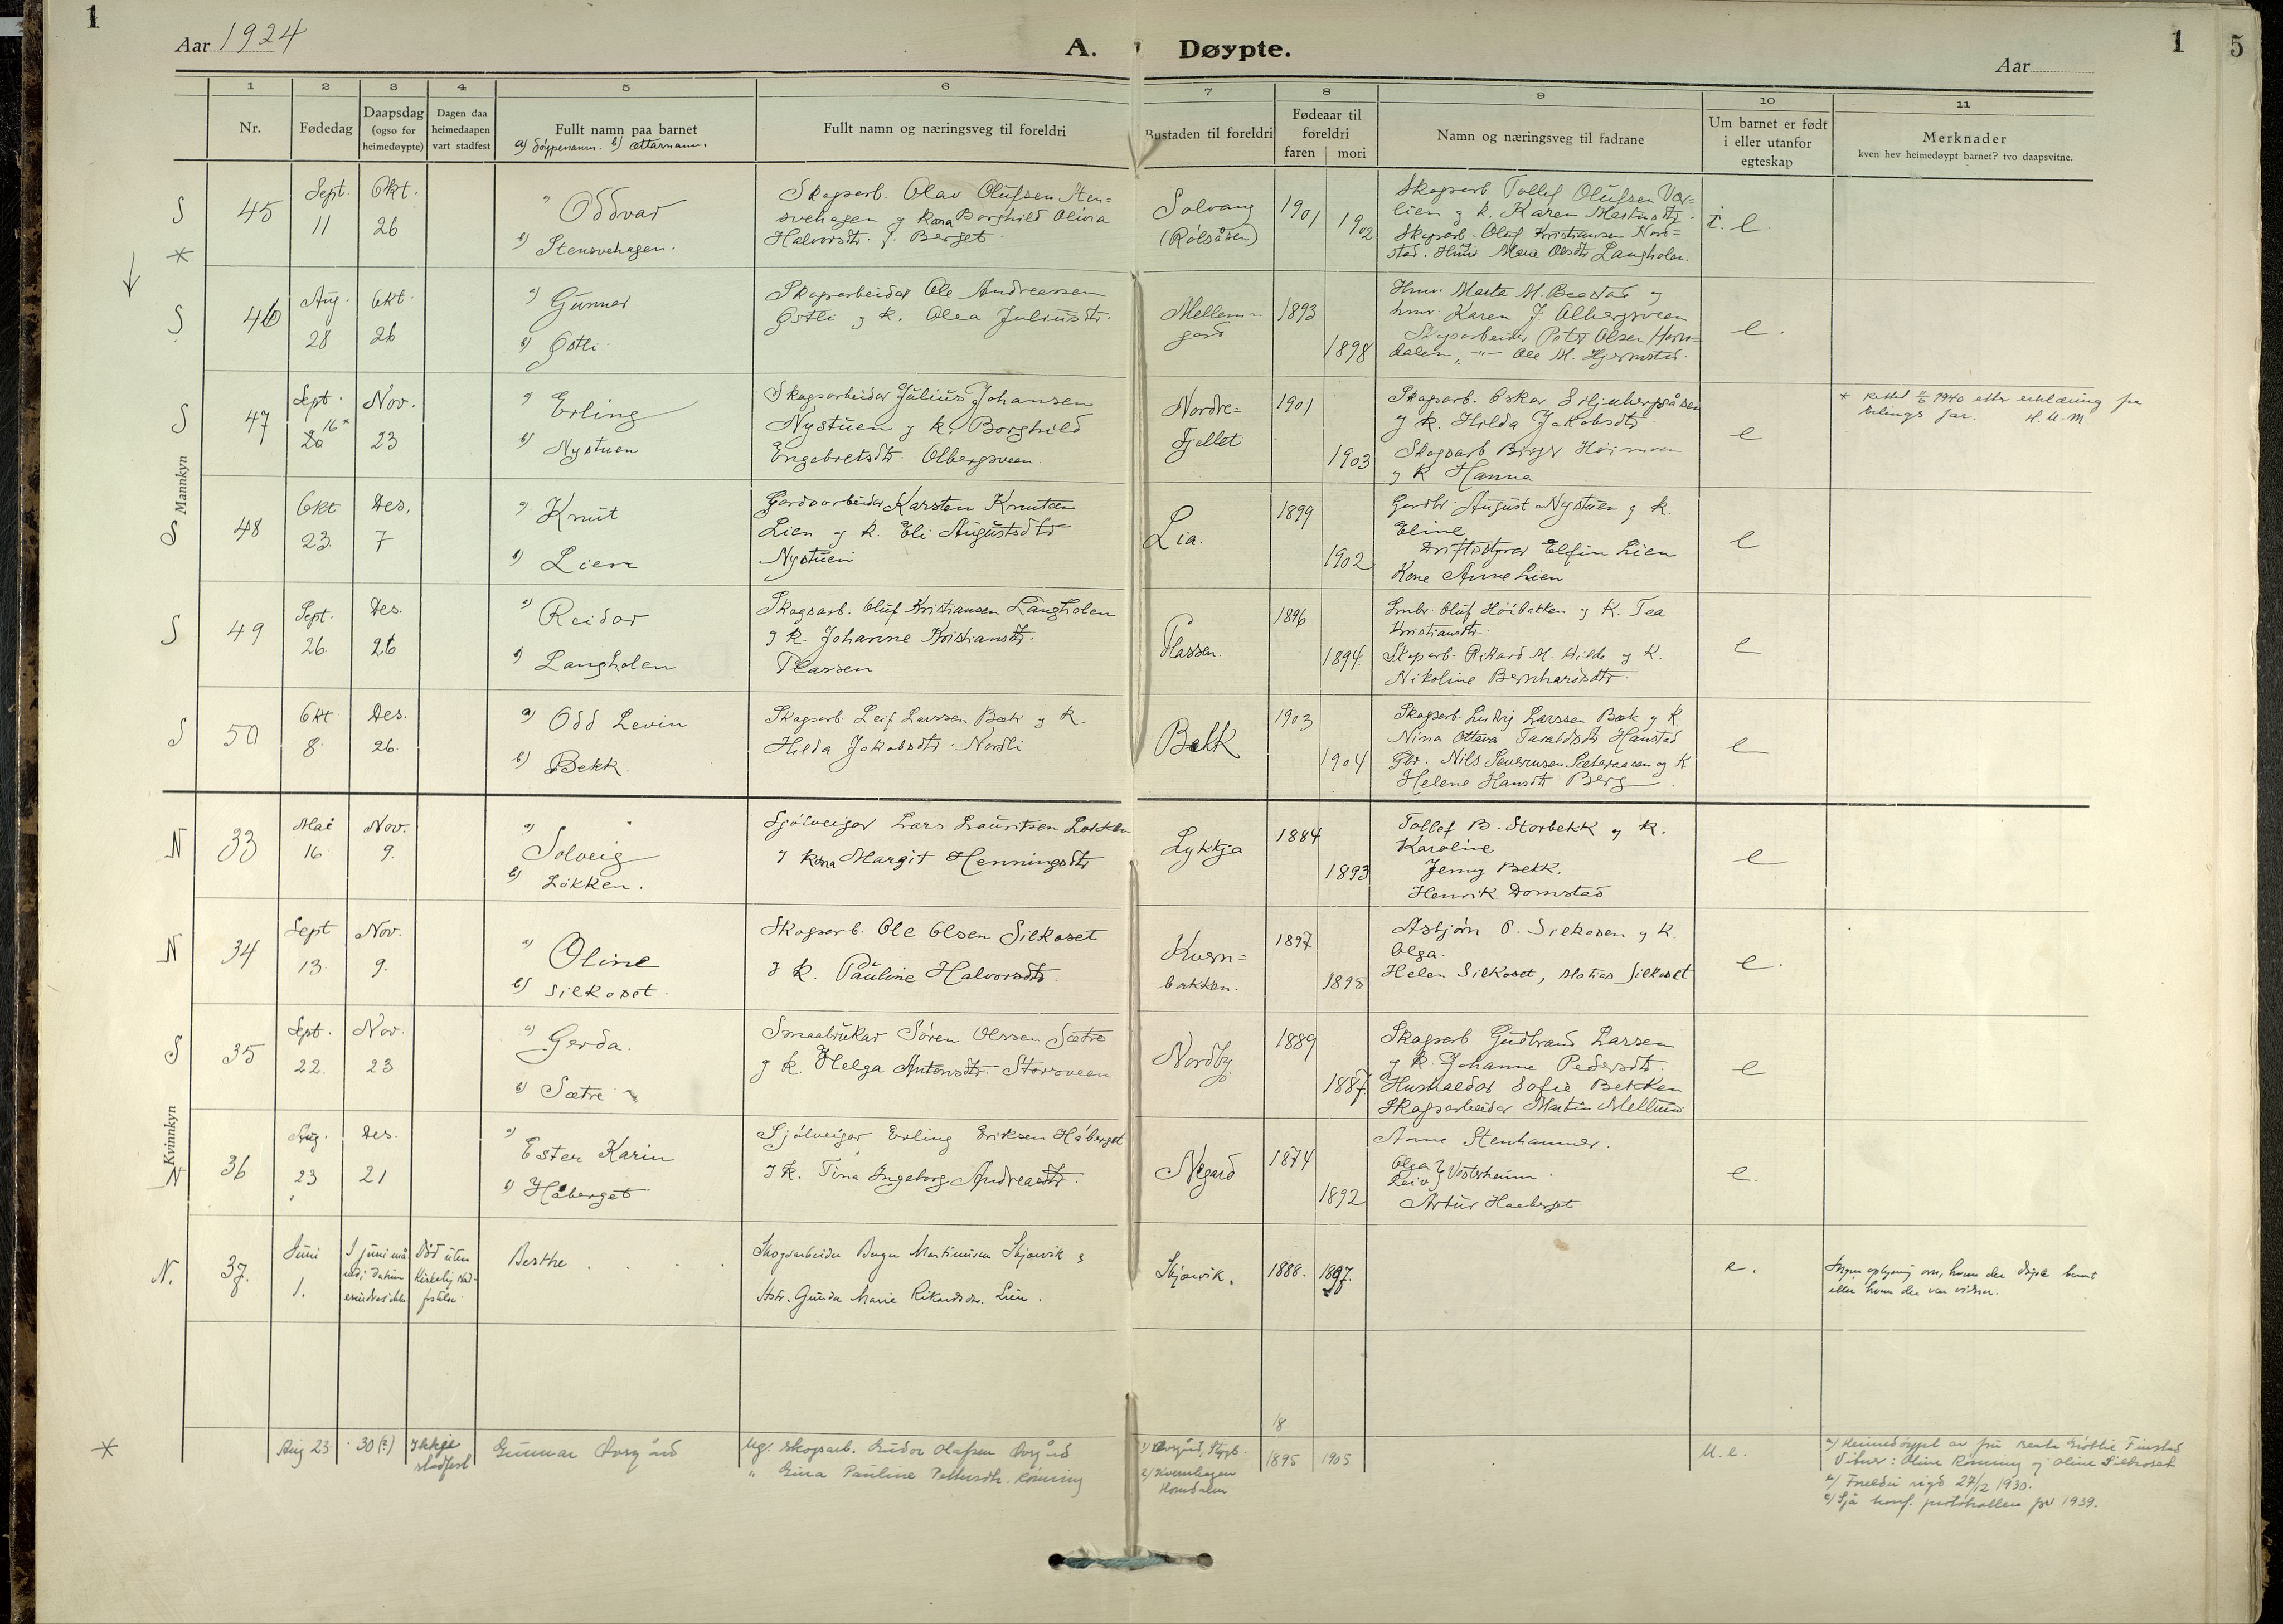 1
Aar 1924
A. Døypte.
Aar
1
5
1 2 3 4 5 6 7 8 9 10 11
Nr.
Fødedag
Daapsdag
(ogso for
heimedøypte)
Dagen daa
heimedaapen
vart stadfest
Fullt namn paa barnet
a) døypenamn. b) ættarnamn.
Fullt namn og næringsveg til foreldri
Bustaden til foreldri
Fødeaar til
foreldri
faren mori
Namn og næringsveg til fadrane
Um barnet er født
i eller utanfor
egteskap
Merknader
kven hev heimedøypt barnet? tvo daapsvitne.
Mannkyn
S 45
Sept. 11
Okt. 26
a) Oddvar
b) Stensvehagen.
Skogsarb. Olav Olufsen Sten=
svehagen g kona Borghild Olivia
Halvorsdtr. f. Berget
Solvang
(Rølsåsen)
1901 1902
Skogsarb Tollef Olufsen
lien g k. Karen
Skogsarb. Oluf Kristiansen Nord=
stad. Marie Olsdtr Langholen.
i. e.
*
S 46
Aug. 28
Okt. 26
a) Gunnar
b) Østli
Skogsarbeidar Ole Andreassen
Østli g k. Olea Juliusdtr.
Mellem=
gard
1893 1898
Marta M. Beastad g
Karen J. Olbergsveen
Skogsarbeidar Petr Olsen Horn=
dalen, -"- Ole M. Hjermstad.
e.
S 47
Sept. 20 16*
Nov. 23
a) Erling
b) Nystuen
Skogsarbeidar Julius Johansen
Nystuen g k. Borghild
Engebretsdtr. Olbergsveen.
Nordre=
Fjellet
1901 1903
Skogsarb. Oskar
g k. Hilda Jakobsdtr
Skogsarb Birger Høimoen
g k Hanna
e
* Rettet 1940 etter erklæring fra
far. H.U.M.
S 48
Okt 23.
Des. 7
a) Knut
b) Lien
Gardsarbeidar Karsten Knutsen
Lien g k. Eli Augustsdtr
Nystuen
Lia.
1899 1902
Gardbr. August Nystuen g k.
Eline
Driftsstyrar Elfin Lien
Kone Anne Lien
e
S 49
Sept. 26.
Des. 26
a) Reidar
b) Langholen
Skogsarb. Oluf Kristiansen Langholen
g k. Johanne Kristiansdtr.
Plassen
Plassen.
1896 1894.
Smbr. Oluf Høibakken g k. Tea
Kristiansdtr.
Skogsarb. Rikard M. Hilde g k.
Nikoline Bernhardsdtr.
e
S 50
Okt 8.
Des. 26.
a) Odd Levin
b) Bekk.
Skogsarb. Leif Larssen Bæk g k.
Hilda Jakobsdtr. Nordli
Bekk
1903 1904
Skogsarb. Ludvig Larssen Bæk g k.
Nina Ottava Taraldsdtr Hanstad
Gbr. Nils Severinsen Sæteraasen og k
Helene Hansdtr Berg.
e
Kvinnkyn
N 33
Mai 16
Nov. 9.
a) Solveig
b) Løkken.
Sjølveigar Lars Lauritsen Løkken
g kona Margit Henningsdtr
Lykkja
1884 1893
Tollef B. Storbekk g k.
Karoline
Jenny Bekk.
Henrik Domstad
e
N 34
Sept 13.
Nov. 9.
a) Oline
b) Silkoset.
Skogsarb. Ole Olsen Silkoset
g k. Pauline Halvorsdtr.
Kvern=
bakken.
1897 1895
Asbjørn P. Silkosen g k.
Olga.
Helen Silkoset, Matias Silkoset
e.
S 35
Sept. 22.
Nov. 23
a) Gerda.
b) Sætre
Smaabrukar Søren Olssen Sætre
g k. Helga Antonsdtr. Storsveen
Nordby
1889 1887.
Skogsarb Gudbrand Larssen
g k. Johanne Pedersdtr.
Hushaldar Sofie Bekken
Skogsarbeidar Martin Mellum
e
N 36
Aug. 23
Des. 21
a) Ester Karin
b) Håberget
Sjølveigar Erling Eriksen Håberget
g k. Tina Ingeborg Andreasdtr.
Negard
1874 1892
Anne Stenhammer.
Olga } Vesterheim.
Leiv
Artur Haaberget
e.
N. 37.
Juni 1.
I juni må
ned; datum
erindres ikke
Död uten
kirkelig stad-
festelse.
Berthe
Skogsarbeider Birger Martinusen Skjærvik g
Hstr. Gunda Marie Rikardsdtr. Lien.
Skjærvik.
1888. 1897.
e.
Ingen oplysning om, hvem der døpte barnet
eller hvem der var vidner.
*
Aug 23
30 (?)
Ikkje
stadfest
Gunnar
Ug. skogsarb. Gudor Olafsen
" Gina Pauline Pettersdtr. Rønning
18
Horndalen
1895 1905
U. e.
a) Heimedøypt av fru Finstad
Vitner: Oline Rønning og Oline Silkoset
b) Foreldri vigd 27/12 1930.
c) Sjå konf. protokollen for 1939.